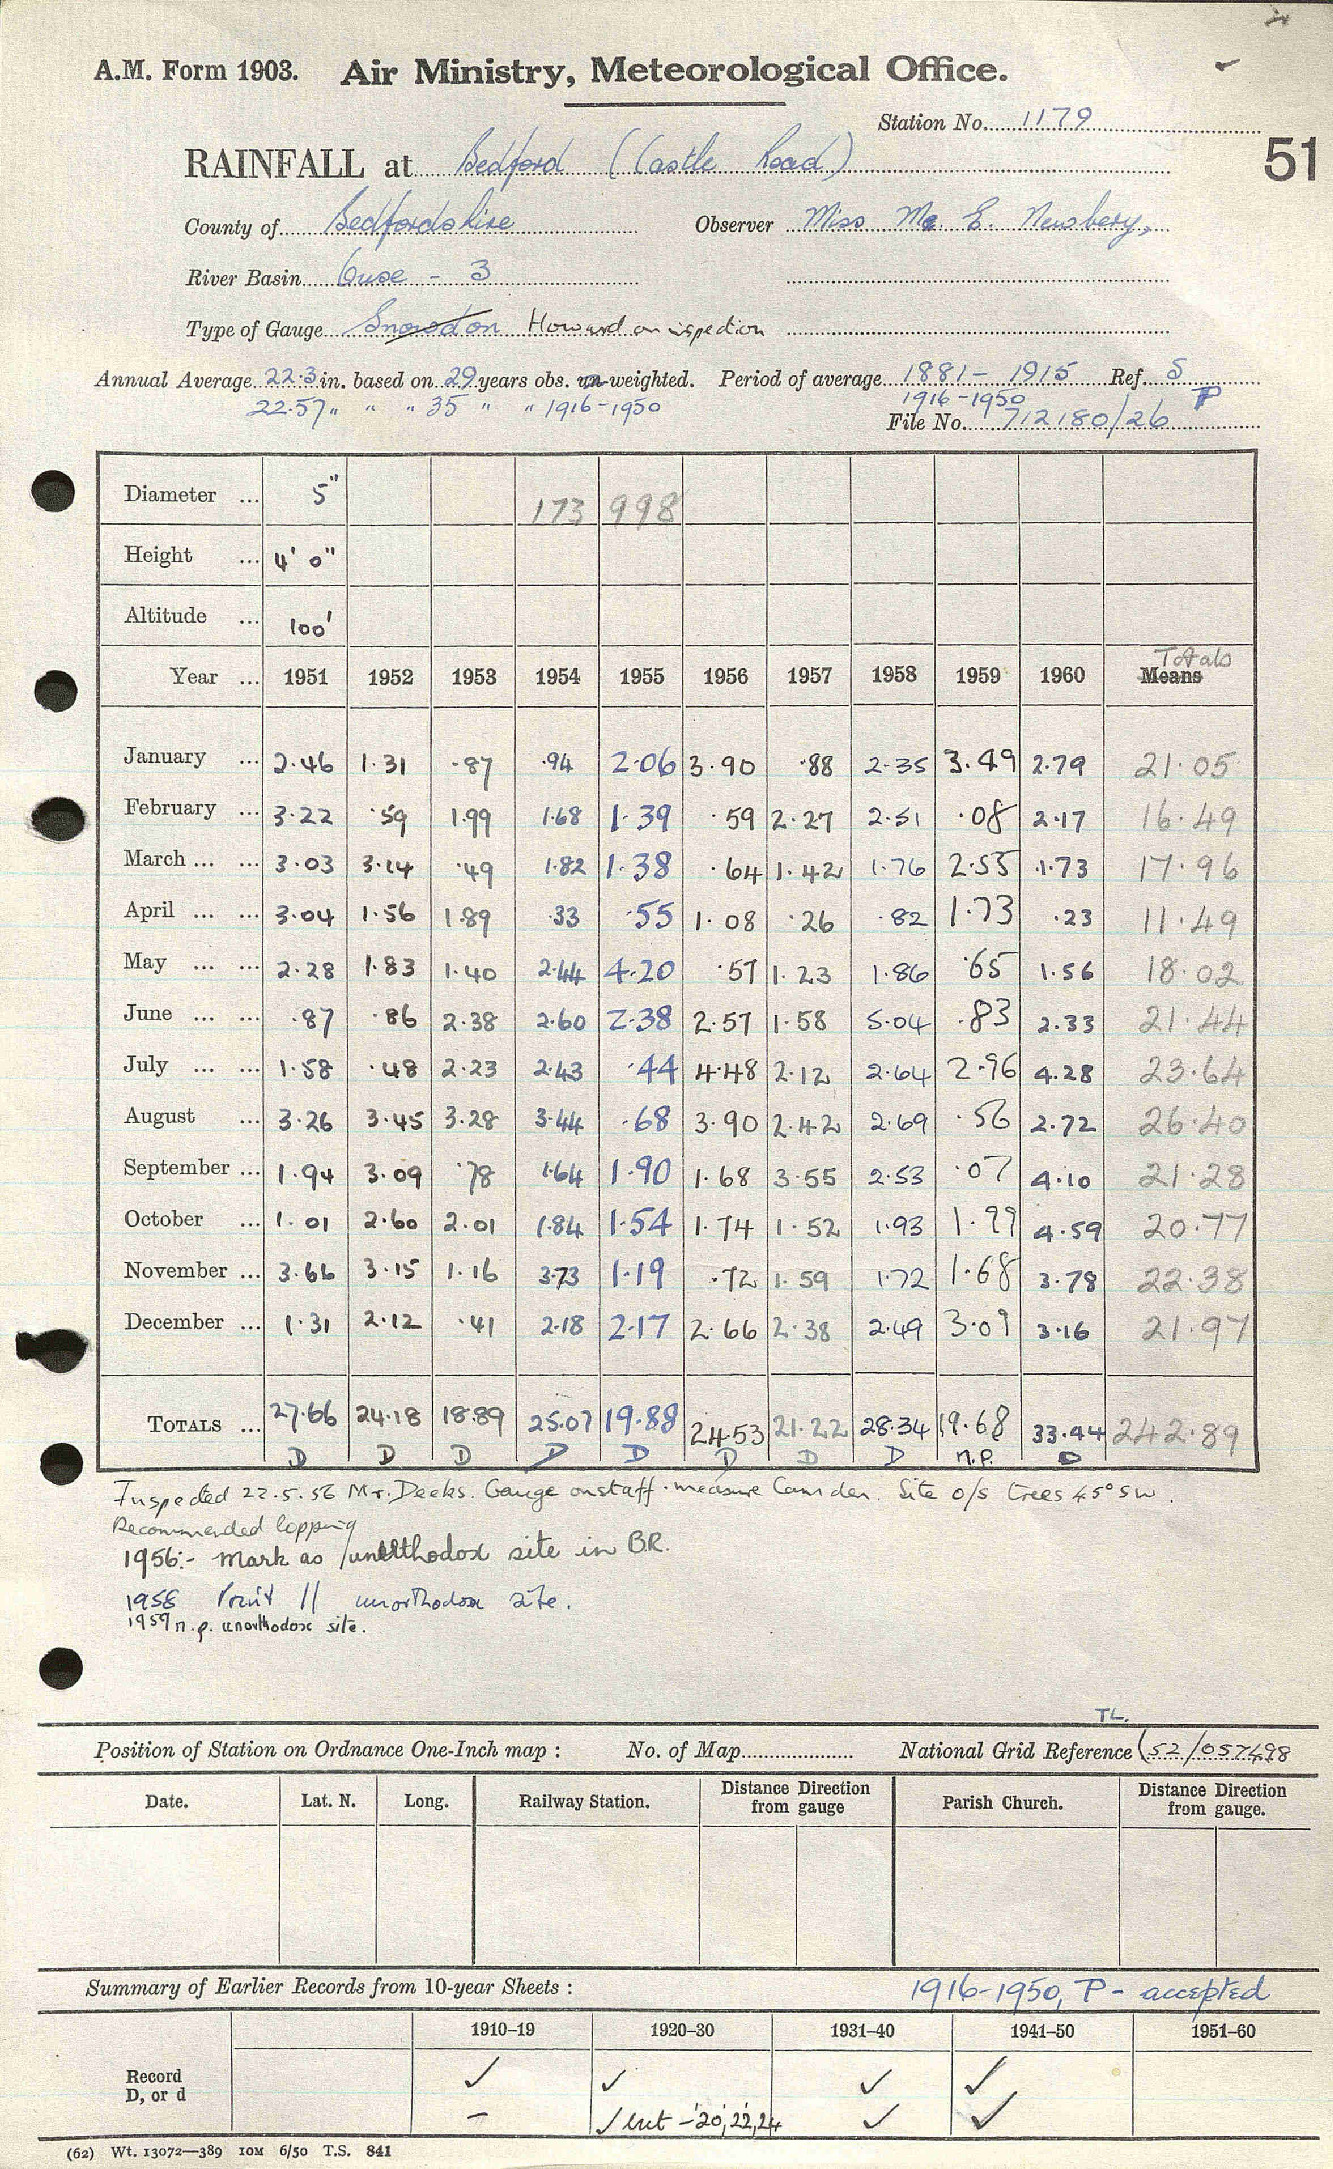 A.M. Form 1903. Air Ministry, Meteorological Office.
Station No. 1179
51
RAINFALL at Bedford (Castle Road)
County of Bedfordshire Observer Miss M. E. Newbery,
River Basin Ouse - 3
Type of Gauge Snowdon Howard on inspection
Annual Average 22.3 in. based on 29 years obs. un-weighted. Period of average 1881 - 1915 Ref. S
22.57 " " " 35 " " 1916-1950 1916-1950 P
File No. 712180/26
Diameter ... 5" 173 998
Height ... 4' 0"
Altitude ... 100'
Totals
Year ... 1951 1952 1953 1954 1955 1956 1957 1958 1959 1960 Means
January ... 2.46 1.31 .87 .94 2.06 3.90 .88 2.35 3.49 2.79 21.05
February ... 3.22 .59 1.99 1.68 1.39 .59 2.27 2.51 .08 2.17 16.49
March ... ... 3.03 3.14 .49 1.82 1.38 .64 1.42 1.76 2.55 1.73 17.96
April ... ... 3.04 1.56 1.89 .33 .55 1.08 .26 .82 1.73 .23 11.49
May ... ... 2.28 1.83 1.40 2.44 4.20 .57 1.23 1.86 .65 1.56 18.02
June ... ... .87 .86 2.38 2.60 2.38 2.57 1.58 5.04 .83 2.33 21.44
July ... ... 1.58 .48 2.23 2.43 .44 4.48 2.12 2.64 2.96 4.28 23.64
August ... 3.26 3.45 3.28 3.44 .68 3.90 2.42 2.69 .56 2.72 26.40
September ... 1.94 3.09 .78 1.64 1.90 1.68 3.55 2.53 .07 4.10 21.28
October ... 1.01 2.60 2.01 1.84 1.54 1.74 1.52 1.93 1.99 4.59 20.77
November ... 3.66 3.15 1.16 3.73 1.19 .72 1.59 1.72 1.68 3.78 22.38
December ... 1.31 2.12 .41 2.18 2.17 2.66 2.38 2.49 3.09 3.16 21.97
TOTALS ... 27.66 24.18 18.89 25.07 19.88 24.53 21.22 28.34 19.68 33.44 242.89
D D D D D D D D n.p. D
Inspected 22.5.56 Mr. Deeks. Gauge on staff. measure Camden. Site o/s trees 45° SW.
Recommended lopping
1956:- Mark as unorthodox site in B.R.
1958 Print || unorthodox site.
1959 n.p. unorthodox site.
TL.
Position of Station on Ordnance One-Inch map : No. of Map National Grid Reference (52/057498
Date. Lat. N. Long. Railway Station. Distance from gauge Direction Parish Church. Distance from gauge. Direction
Summary of Earlier Records from 10-year Sheets : 1916-1950, P - accepted
1910–19 1920–30 1931–40 1941–50 1951–60
Record ✓ ✓ ✓ ✓
D, or d – ✓ but - '20, '22, 24 ✓ ✓
(62) Wt. 13072—389 10M 6/50 T.S. 841